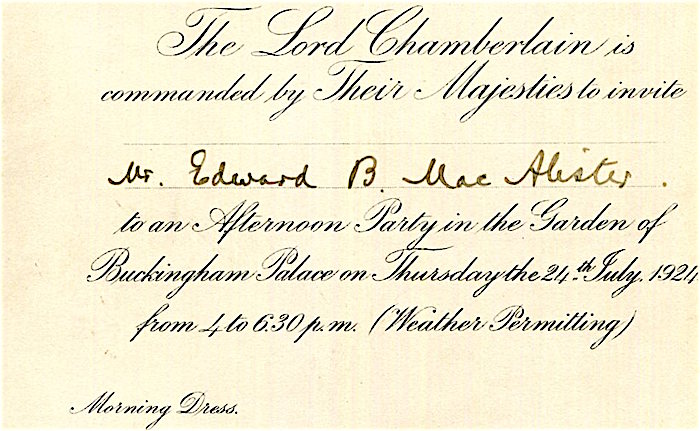 The Lord Chamberlain is
commanded by Their Majesties to invite
Mr. Edward B. Mac Alister.
to an Afternoon Party in the Garden of
Buckingham Palace on Thursday the 24th July, 1924
from 4 to 6.30 p.m. (Weather Permitting)
Morning Dress.